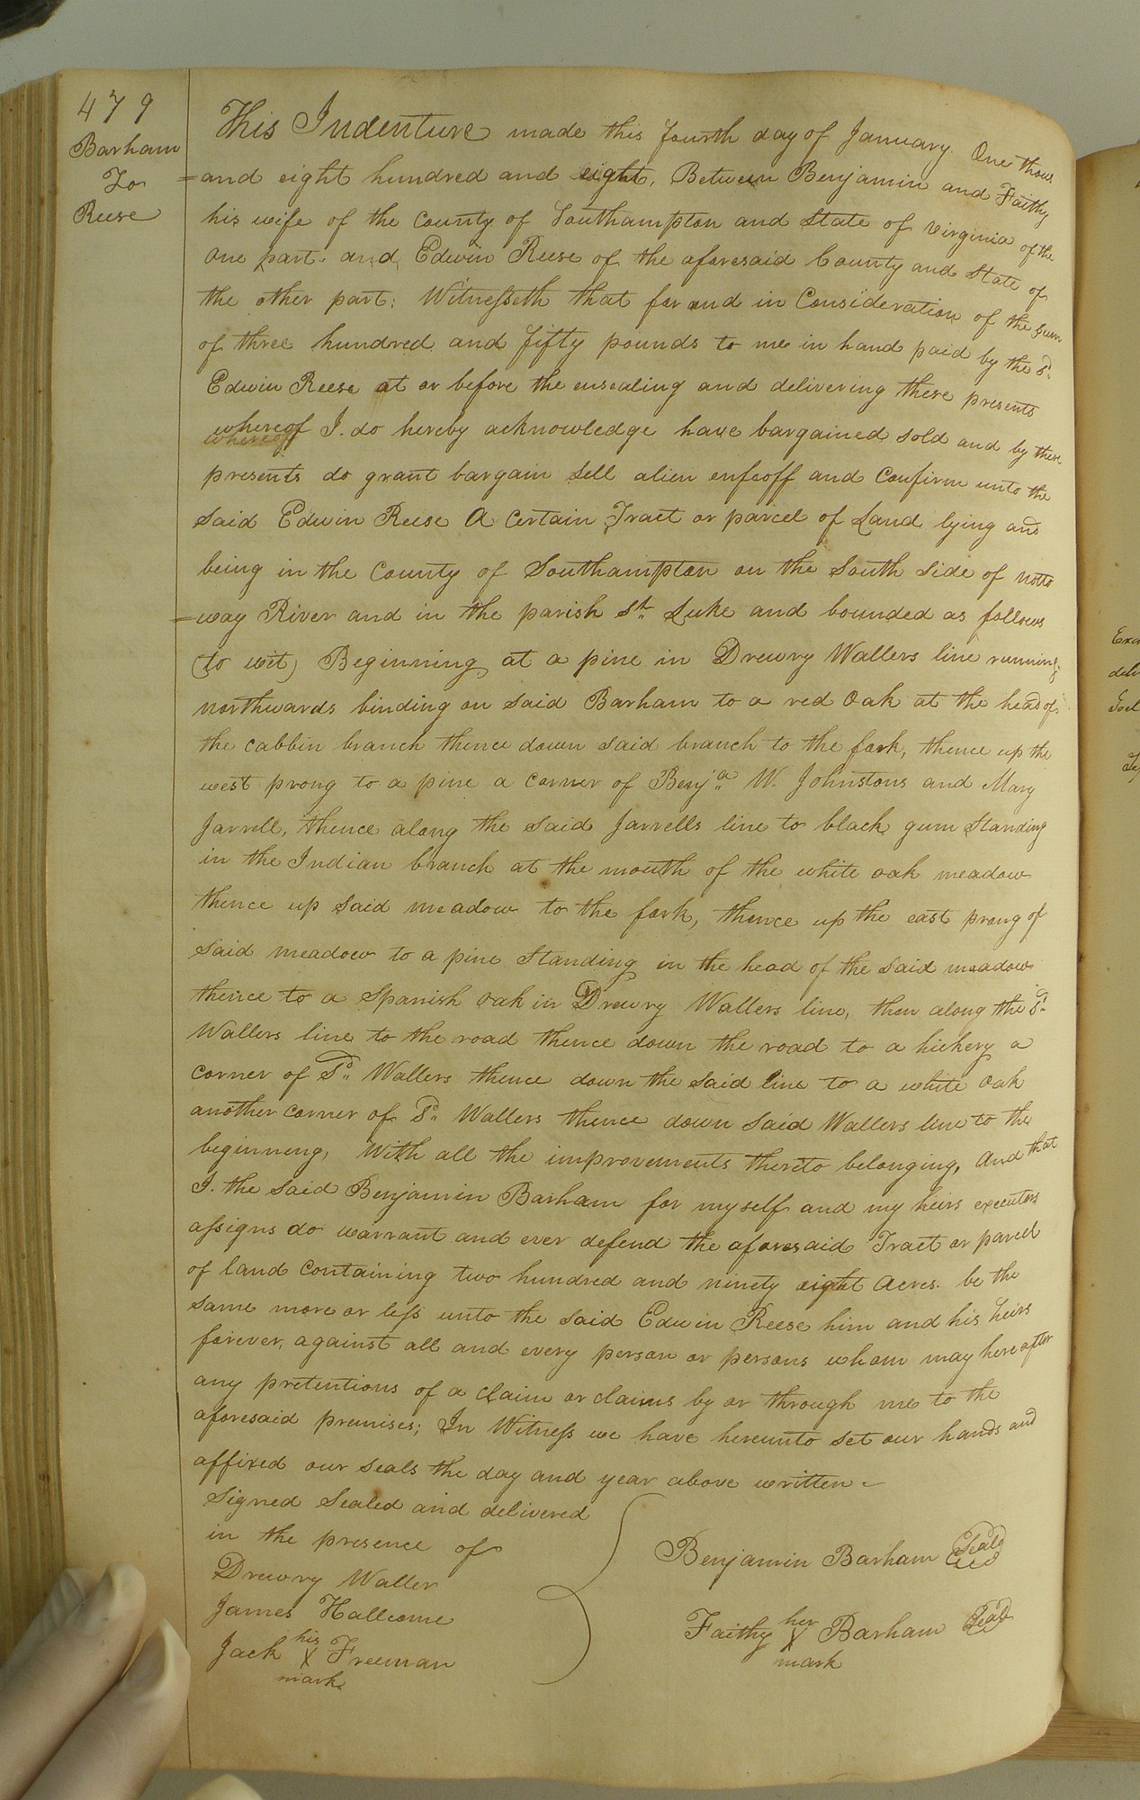 479
Barham
To
Reese
This Indenture made this fourth day of January One thous
=and eight hundred and eight, Between Benjamin and Faithy
his wife of the County of Southampton and State of virginia of the
One part. and Edwin Reese of the aforesaid County and State of
the other part; Witnesseth that for and in Consideration of the Sum
of three hundred and fifty pounds to me in hand paid by the sd.
Edwin Reese at or before the ensealing and delivering these presents
whereof I. do hereby acknowledge have bargained sold and by these
presents do grant bargain sell alien enfeoff and Confirm unto the
said Edwin Reese A Certain Tract or parcel of Land lying and
being in the County of Southampton on the South side of notto
=way River and in the parish St. Luke and bounded as follows
(to wit) Beginning at a pine in Drewry Wallers line running
northwards binding on said Barham to a red Oak at the head of
the cabbin branch thence down said branch to the fork, thence up the
west prong to a pine a corner of Benja. W. Johnstons and Mary
Jarrell, thence along the said Jarrells line to black gum Standing
in the Indian branch at the mouth of the white oak meadow
thence up said meadow to the fork, thence up the east prong of
said meadow to a pine Standing in the head of the said meadow
thence to a Spanish oak in Drewry Wallers line, then along the sd.
Wallers line to the road thence down the road to a hickery a
corner of sd. Wallers thence down the said line to a white oak
another corner of sd. Wallers thence down said Wallers line to the
beginneng, With all the improvements thereto belonging, And that
I. the said Benjamin Barham for myself and my heirs executors
assigns do warrant and ever defend the aforesaid Tract or parcel
of land containing two hundred and ninety eight Acres. be the
same more or less unto the said Edwin Reese him and his heirs
forever, against all and every person or persons whom may hereafter
any pretentions of a claim or claims by or through me to the
aforesaid premises; In Witness we have hereunto set our hands and
affixed our seals the day and year above written
Signed Sealed and delivered
in the presence of
Drewry Waller
James Hallcome
Jack his X mark Freeman
Benjamin Barham Seal
Faithy her X mark Barham Seal